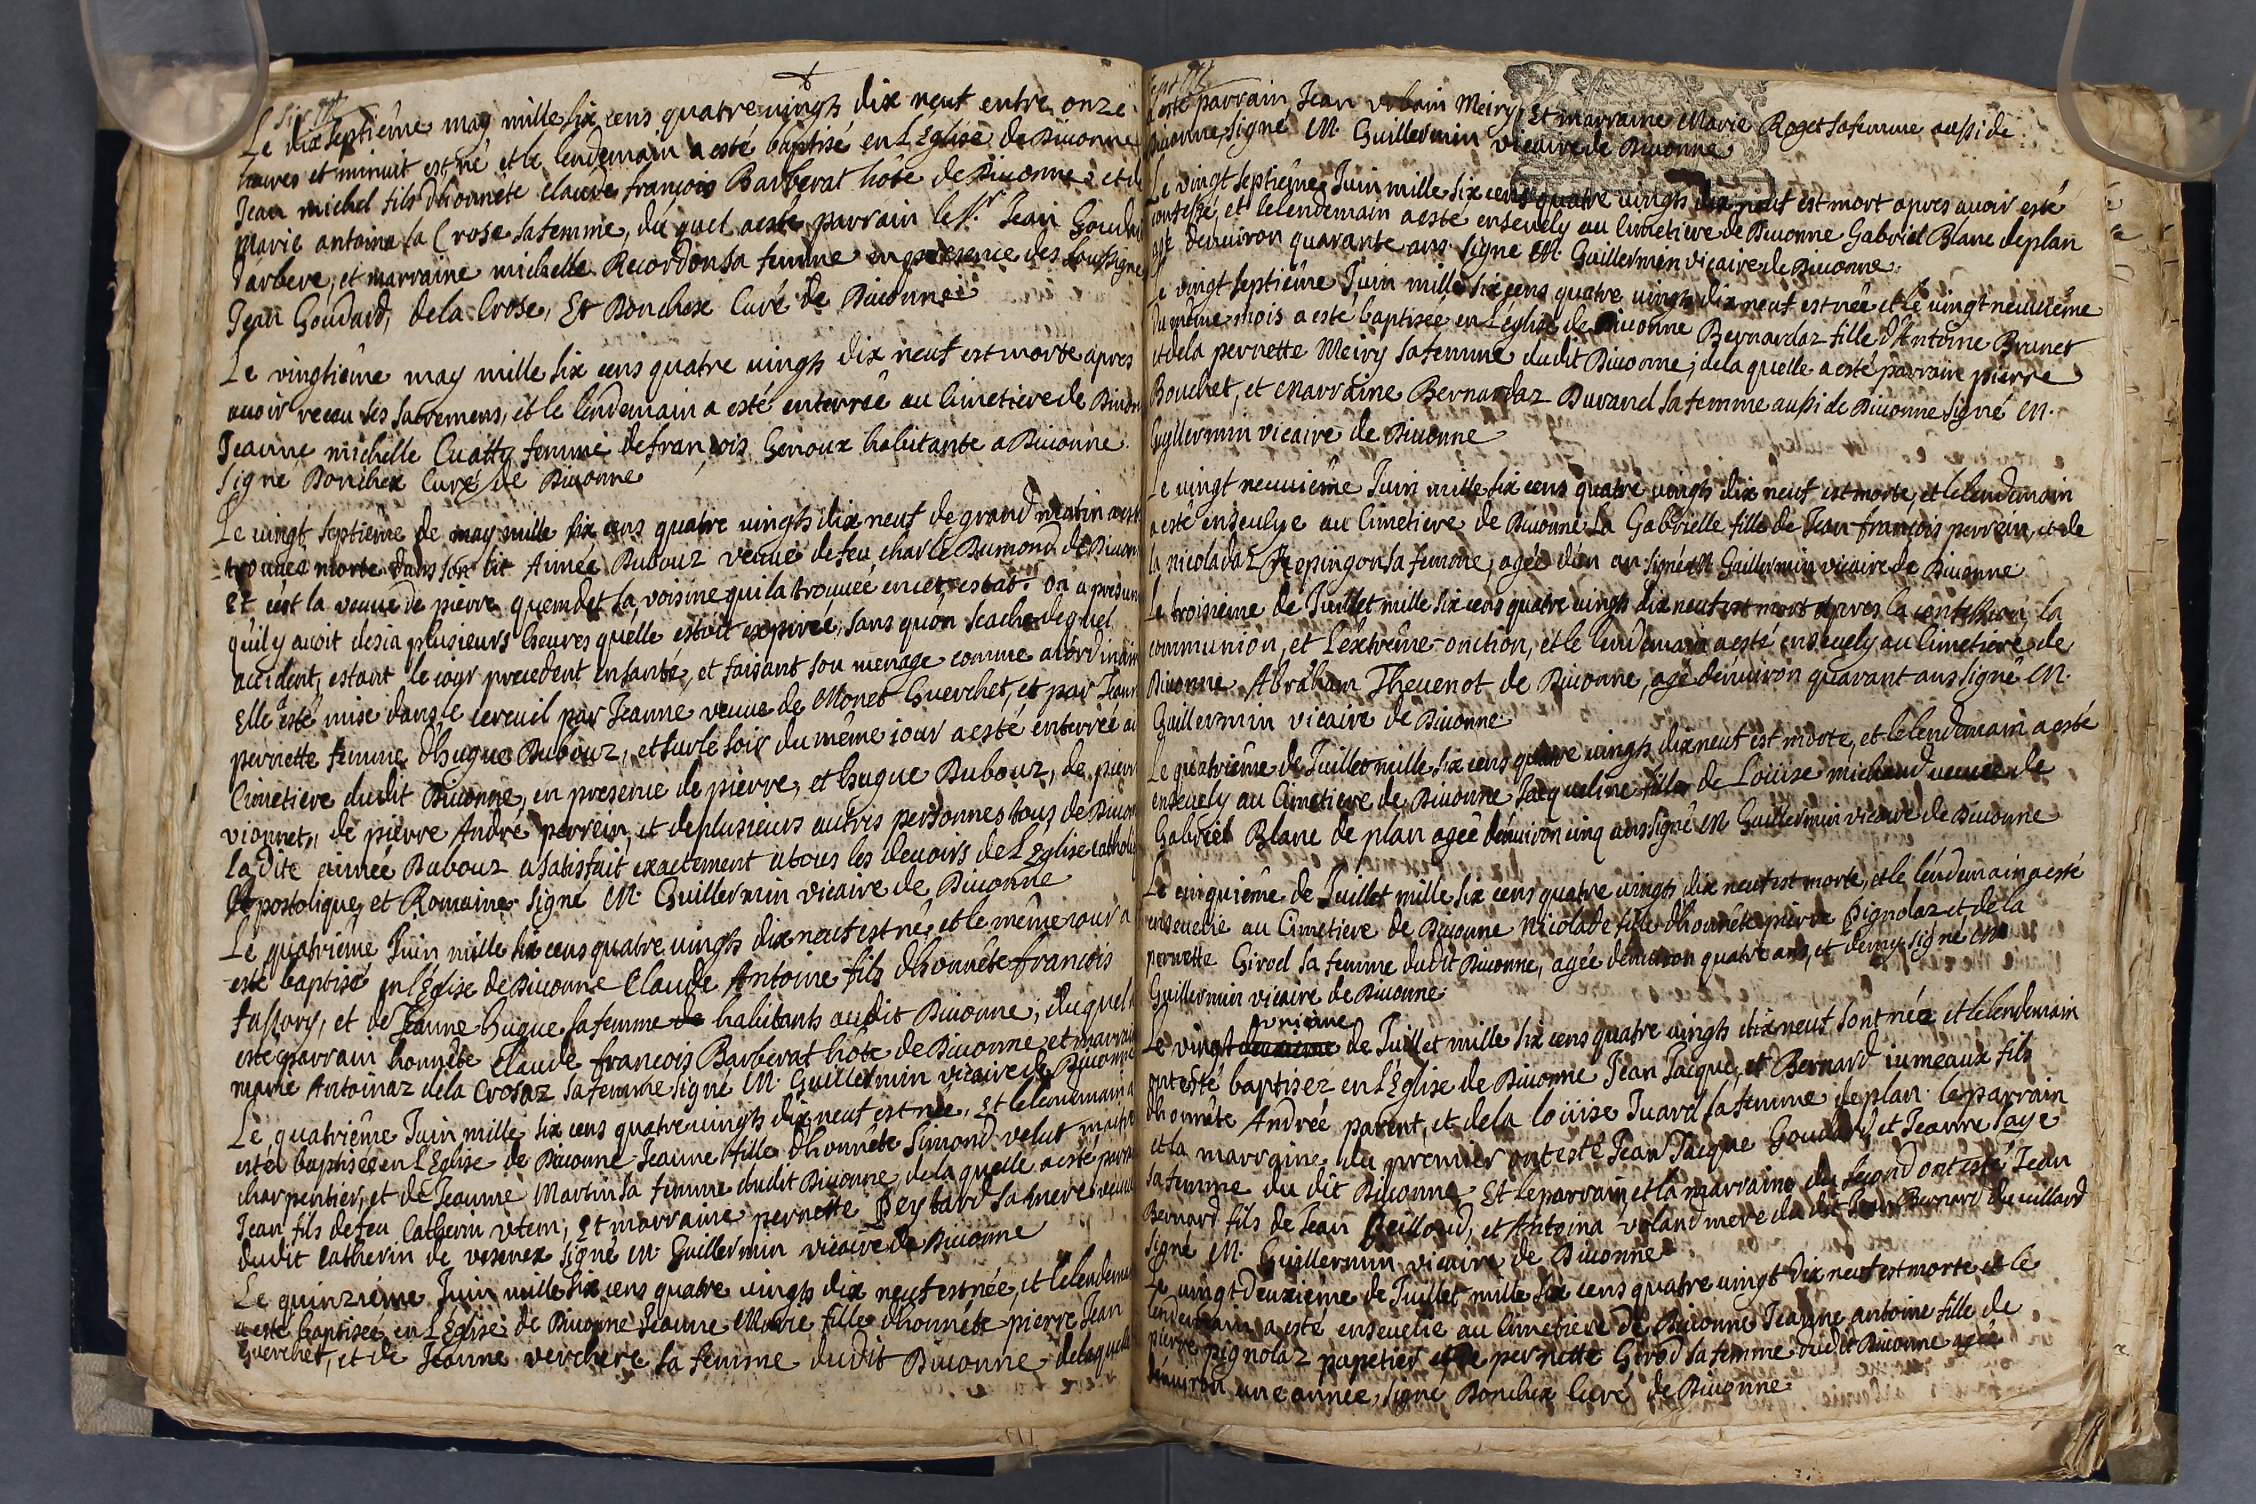 Le dixseptiême may mille six cens quatre vingts dix neuf entre onze
heures et minuit est né et le lendemain a esté baptisé en L'Eglise de Diuonne
Jean michel fils d'honnete claude françois Barberat hôte de Diuonne, et de
Marie antoina la Crose sa femme, du quel a esté parrain le sr. Jean Goudar
d'arbere, et marraine michelle Recordon sa femme en presence des soussigne
Jean Goudard, dela Crose, Et Bonchex Curé de Diuonne
Le vingtiême may mille six cens quatre vingts dix neuf est morte apres
auoir receu ses sacremens, et le lendemain a esté enterrée au Cimetiere de Diuon
Jeanne michelle Cuatty femme de françois Genoux habitante a Diuonne
signé Bonchex Curé de Diuonne
Le vingt septiême de may mille six cens quatre vingts dix neuf de grand matin a esté
trouuée morte dans son lit Aimée Dubouz veuue de feu charle Dumond de Diuon
Et c'est la veuue de pierre quemdet sa voisine qui la trouuée en cet estat. on a presum
qu'il y auoit desia plusieurs heures qu'elle estoit expirée, sans qu'on scache de quel
accident, estant le iour precedent en santé, et faisant son menage comme a l'ordinair
Elle a esté mise dans le cercuil par Jeanne veuue de Monet Guerchet, et par Jeann
pernette femme d'hugue Dubouz, et sur le soir du même iour a esté enterrée au
Cimetiere dudit Diuonne, en presence de pierre, et hugue Dubouz, de pierre
vionnet, de pierre André perrein, et de plusieurs autres personnes tous de Diuon
La dite aimée Dubouz a satisfait exactement a tous les deuoirs de L'Eglise catholi
Apostolique, et Romaine signé M. Guillermin vicaire de Diuonne
Le quatrieme Juin mille six cens quatre vingts dix neuf est né, et le même iour a
esté baptisé en l'Eglise de Diuonne Claude Antoine fils d'honnête françois
fassory, et de Jeanne hugue sa femme de habitants audit Diuonne, du quel a
esté parrain honnête Claude françois Barberat hote de Diuonne, et marrain
marie Antoinaz dela Crosaz sa femme signé M. Guillermin vicaire de Diuonne
Le quatriême Juin mille six cens quatre vingts dix neuf est née, et le lendemain a
esté baptisée en L'Eglise de Diuonne Jeanne fille d'honnête Simond velut maitre
charpentier, et de Jeanne Martin sa femme dudit Diuonne, de la quelle a esté parrai
Jean fils de feu Catherin vtem, Et marraine pernette Peytard sa mere veuue
dudit catherin de vesenex signé M. Guillermin vicaire de Diuonne
Le quinziême Juin mille six cens quatre vingts dix neuf est née, et le lendemai
a esté baptisée en L'Eglise de Diuonne Jeanne Marie fille d'honnête pierre Jean
Guerchet, et de Jeanne verchere sa femme dudit Diuonne de la quelle
a esté parrain Jean vrbain Meiry, Et marraine Marie Roget sa femme aussi de
Diuonne, signé M. Guillermin vicaire de Diuonne
Le vingt septiême Juin mille six cens quatre vingts dix neuf est mort apres auoir esté
confessé, et le lendemain a esté enseuely au Cimetiere de Diuonne Gabriel Blanc de plan
agé d'enuiron quarante ans signé M. Guillermin vicaire de Diuonne
Le vingt septiême Juin mille six cens quatre vingts dix neuf est née et le vingt neuuiême
du même mois a esté baptisée en l'eglise de Diuonne Bernardaz fille d'Antoine Brunet
et dela pernette Meiry sa femme dudit Diuonne; de la quelle a esté parrain pierre
Bouchet, et Marraine Bernardaz Durand sa femme aussi de Diuonne signé M.
Guyllermin vicaire de Diuonne
Le vingt neuuiême Juin mille six cens quatre vingts dix neuf est morte, et le lendemain
a esté enseuelye au Cimetiere de Diuonne La Gabrielle fille de Jean françois perrein, et de
la nicoladaz Repingon sa femme, agée d'un an signé M Guillermin vicaire de Diuonne
Le troisieme de Juillet mille six cens quatre vingts dix neuf est mort apres la confession, la
communion, et l'extrême-onction, et le lendemain a esté enseuely au Cimetiere de
Diuonne Abraham Theuenot de Diuonne, agé d'enuiron quarant ans signé M.
Guillermin vicaire de Diuonne
Le quatriême de Juillet mille six cens quatre vingts dix neuf est morte, et le lendemain a esté
enseuely au Cimetiere de Diuonne Jacqueline fille de Loüise michaud veuue de
Gabriel Blanc de plan agée d'enuiron cinq ans signé M Guillermin vicaire de Diuonne
Le cinquiême de Juillet mille six cens quatre vingts dix neuf est morte, et le lendemain a esté
enseuelie au Cimetiere de Diuonne Nicolade fille d'honnête pierre Pignolaz et de la
pernette Girod sa femme dudit Diuonne, agée d'enuiron quatre ans, et demy signé M
Guillermin vicaire de Diuonne
Le vingt vnieme de Juillet mille six cens quatre vingts dix neuf sont néz et le lendemain
ont esté baptisez en L'Eglise de Diuonne Jean Jacque, et Bernard iumeaux fils
d'honnête Andrée parent, et de la loüise Juard sa femme de plan. le parrain
et la marraine, du premier ont esté Jean Jacque Goudard, et Jeanne Laye
sa femme du dit Diuonne Et le parrain, et la marraine du second ont esté Jean
Bernard fils de Jean Peilloud, et Antoina roland mere du dit Jean Bernard du uillard
signé M. Guillermin vicaire de Diuonne
Le vingt deuxiême de Juillet mille six cens quatre vingt dix neuf est morte et le
lendemain a esté enseuelie au Cimetiere de Diuonne Jeanne antoine fille de
pierre pignolaz papetier et de pernette Girod sa femme dudit Diuonne agée
d'enuiron une année, signé Bonchex Curé de Diuonne